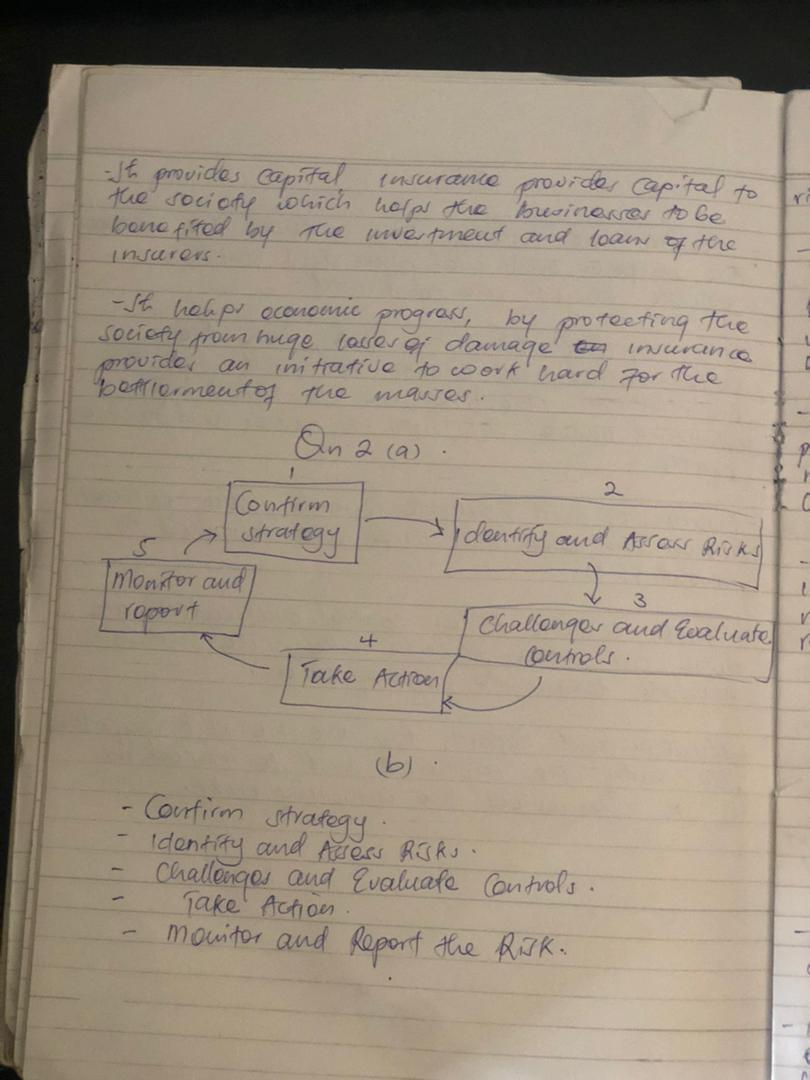 -It provides Capital insurance provides Capital to
the society which helps the businesses to be
benefited by the investment and loans of the
insurers.
-It helps economic progress, by protecting the
society from huge losses of damage insurance
provides an initiative to work hard for the
betterment of the masses.
Qn 2 (a).
1
Confirm
strategy
2
Identify and Assess Risks
5
Monitor and
report
3
Challenges and Evaluate
Controls.
4
Take Action
(b).
- Confirm strategy.
- Identify and Assess Risks.
- Challenges and Evaluate Controls.
- Take Action.
- Monitor and Report the Risk.